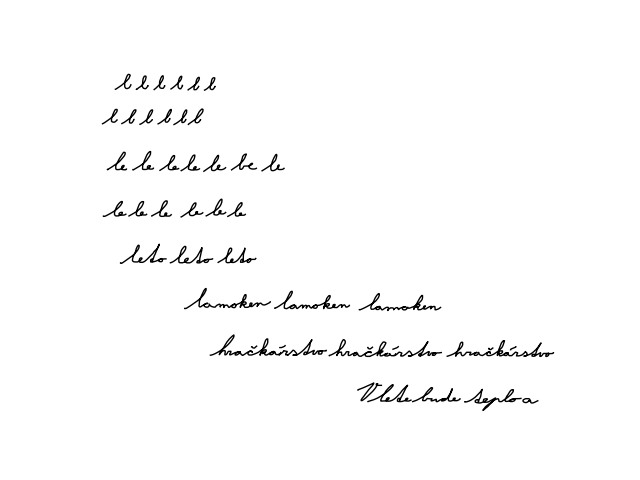 l l l l l l
l l l l l l
le le le le le le le
le le le le le le
leto leto leto
lamoken lamoken lamoken
hračkárstvo hračkárstvo hračkárstvo
V lete bude teplo a